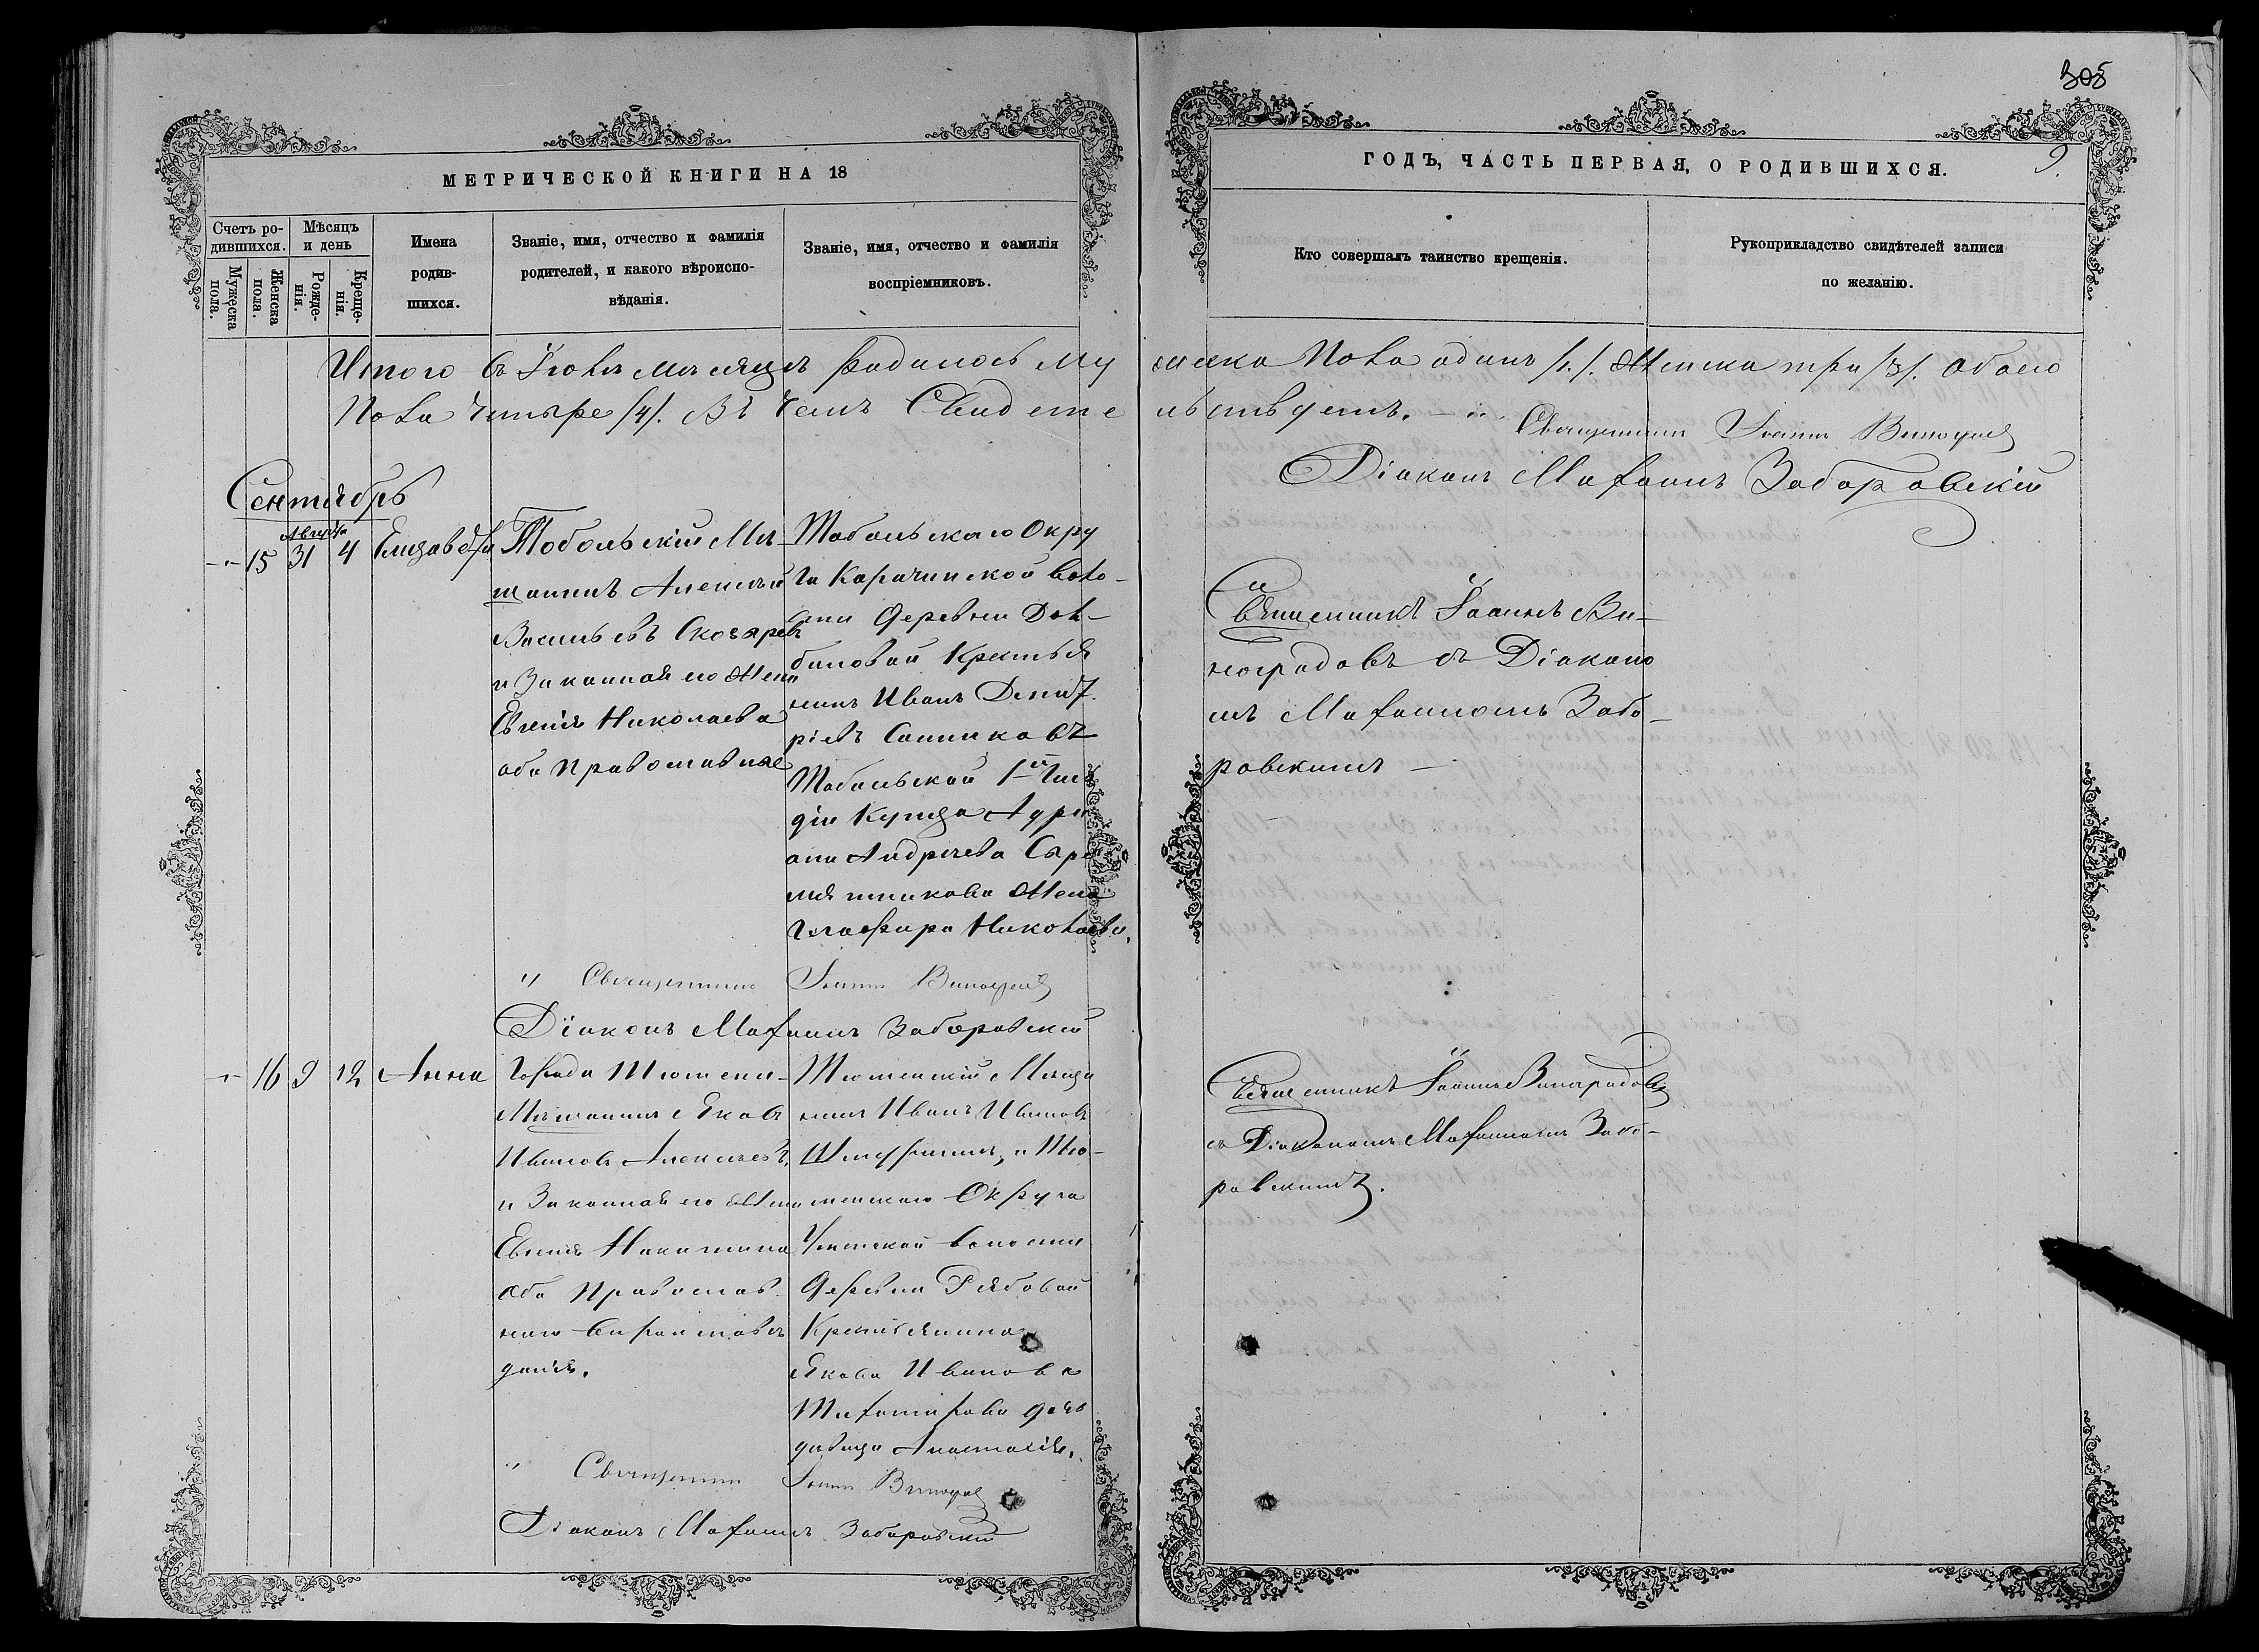 305
МЕТРИЧЕСКОЙ КНИГИ НА 18
ГОДЪ, ЧАСТЬ ПЕРВАЯ, О РОДИВШИХСЯ.
9.
Счетъ ро-
дившихся.
Мужеска
пола.
Женска
пола.
Мѣсяцъ
и день
Рожде-
нія.
Креще-
нія.
Имена
родив-
шихся.
Званіе, имя, отчество и фамилія
родителей, и какого вѣроиспо-
вѣданія.
Званіе, имя, отчество и фамилія
воспріемниковъ.
Кто совершалъ таинство крещенія.
Рукоприкладство свидѣтелей записи
по желанію.
Итого въ мѣсяцѣ родилось му
жеска пола одинъ /1./. Женска три /3/. Обоего
Пола четыре /4/. Въ чемъ Свидете
льствуемъ.
Священникъ Іоаннъ Виноград
Діаконъ Заборовскій
Сентябрь
Августа
15 31 4 Елизавета
Тобольскій Мѣ-
щанинъ Алексѣй
Васильевъ Скочаревъ
и Законная его Жена
Евгенія Николаева
оба Православные
Тобольскаго Окру
га Карачинской Воло-
сти Деревни Дол-
биловой Крестья
нинъ Иванъ Димит
ріевъ Санниковъ
Тобольской 1й Гиль
діи Купца Адрі
ана Андреева Сыро
мятникова Жена
Глафира Николаева.
Священникъ Іоаннъ Ви-
ноградовъ съ Діаконо
мъ Забо-
ровскимъ
Священникъ Іоаннъ Виноград
Діаконъ Заборовскій
16 9 12 Анна
Города Тюмени
Мѣщанинъ Яковъ
Ивановъ Алексѣевъ,
и Законная его Жена
Евгенія Никитина
оба Православ
наго Вероисповѣ
данія.
Тюменскій Мѣща
нинъ Иванъ Ивановъ
и Тю-
менскаго Округа
волости
Деревни Рябовой
Крестьянина
Якова Иванова
дочь
дѣвица Анастасія.
Священникъ Іоаннъ Виноградовъ
съ Діакономъ Забо-
ровскимъ.
Священникъ Іоаннъ Виноград
Діаконъ Заборовскій